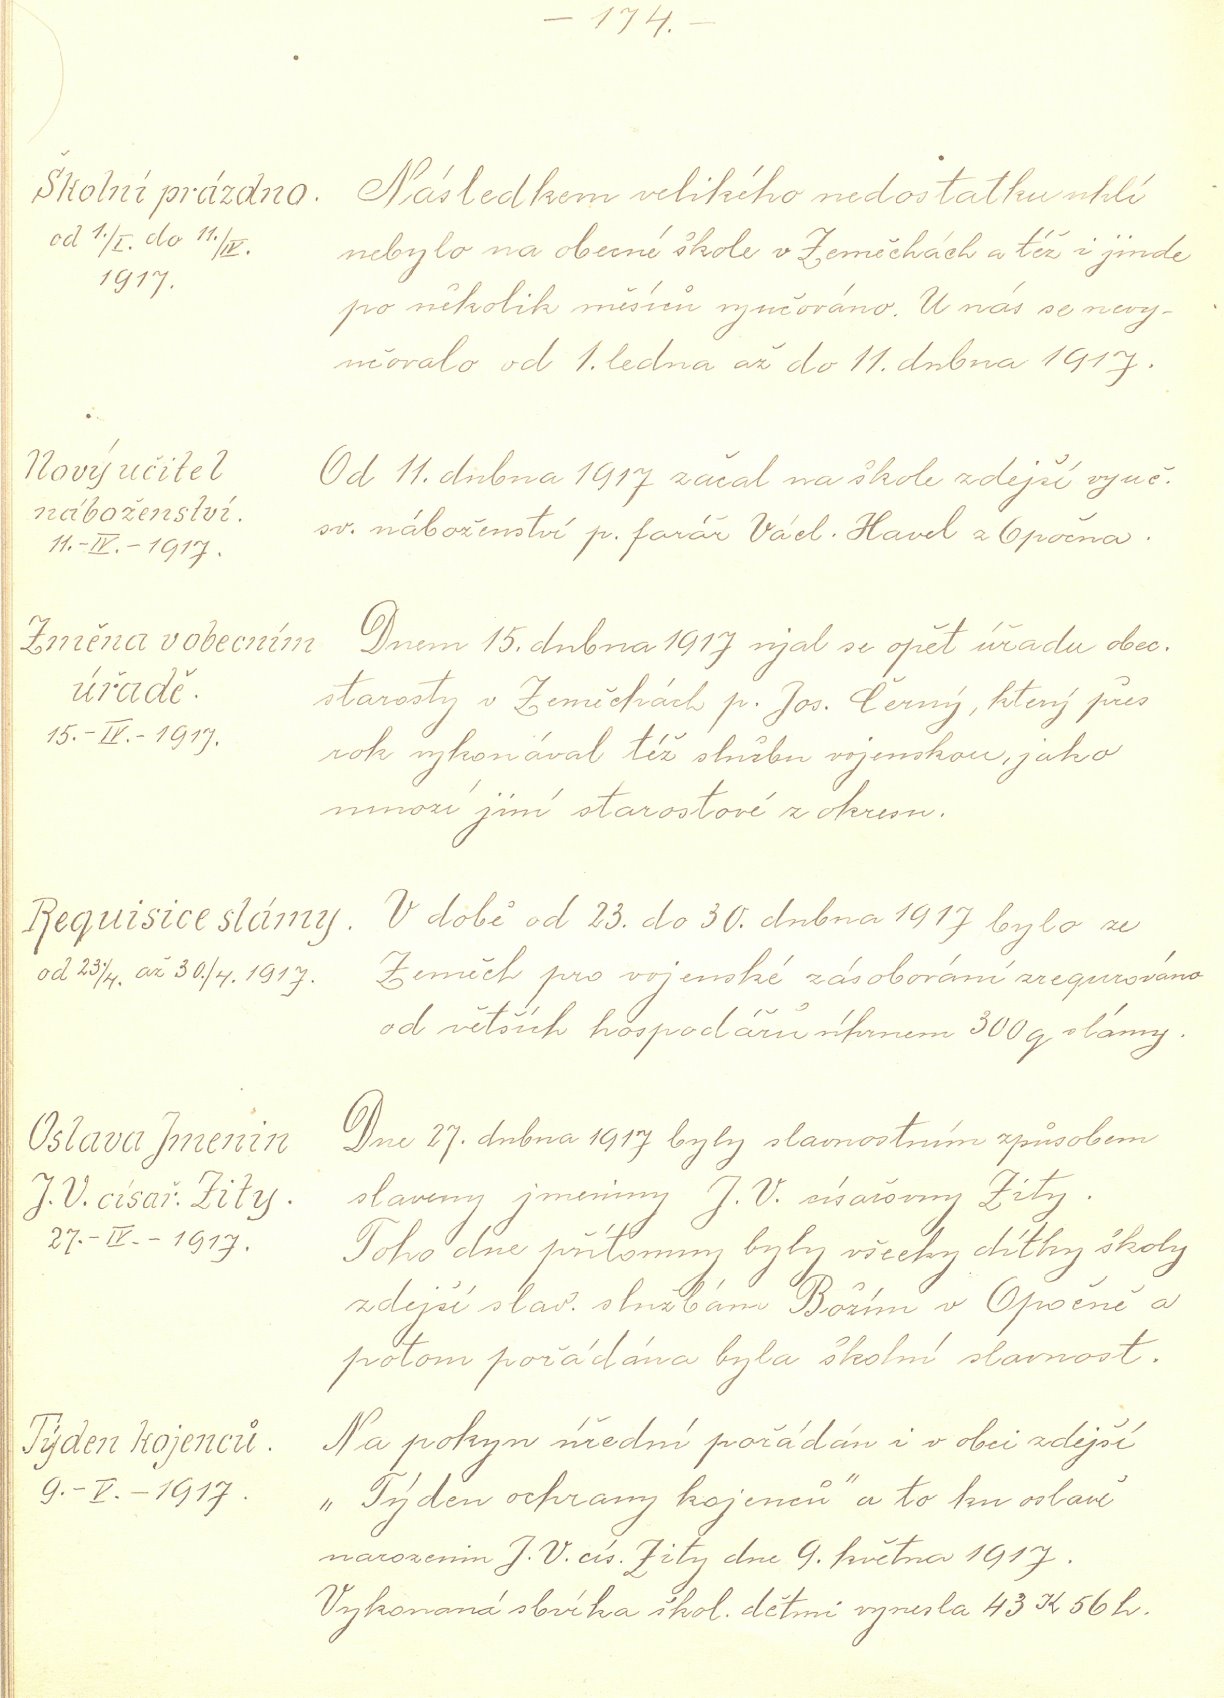 – 174. –
Školní prázdno.
od 1./I. do 11./IV.
1917.
Následkem velikého nedostatku uhlí
nebylo na obecné škole v Zeměchách a též i jinde
po několik měsíců vyučováno. U nás se nevy-
učovalo od 1. ledna až do 11. dubna 1917.
Nový učitel
náboženství.
11.-IV.-1917.
Od 11. dubna 1917 začal na škole zdejší vyuč.
sv. náboženství p. farář Václ. Havel z Opočna.
Změna v obecním
úřadě.
15.-IV.-1917.
Dnem 15. dubna 1917 ujal se opět úřadu obec.
starosty v Zeměchách p. Jos. Černý, který přes
rok vykonával též službu vojenskou, jako
mnozí jiní starostové z okresu.
Requisice slámy.
od 23./4. až 30./4. 1917.
V době od 23. do 30. dubna 1917 bylo ze
Zeměch pro vojenské zásobování zrequrováno
od větších hospodářů úhrnem 300 q slámy.
Oslava Jmenin
J. V. císař. Zity.
27.-IV.-1917.
Dne 27. dubna 1917 byly slavnostním způsobem
slaveny jmeniny J. V. císařovny Zity.
Toho dne přítomny byly všecky dítky školy
zdejší slav. službám Božím v Opočně a
potom pořádána byla školní slavnost.
Týden kojenců.
9.-V.-1917.
Na pokyn úřední pořádán i v obci zdejší
„Týden ochrany kojenců" a to ku oslavě
narozenin J. V. cís. Zity dne 9. května 1917.
Vykonaná sbírka škol. dětmi vynesla 43 K 56 h.